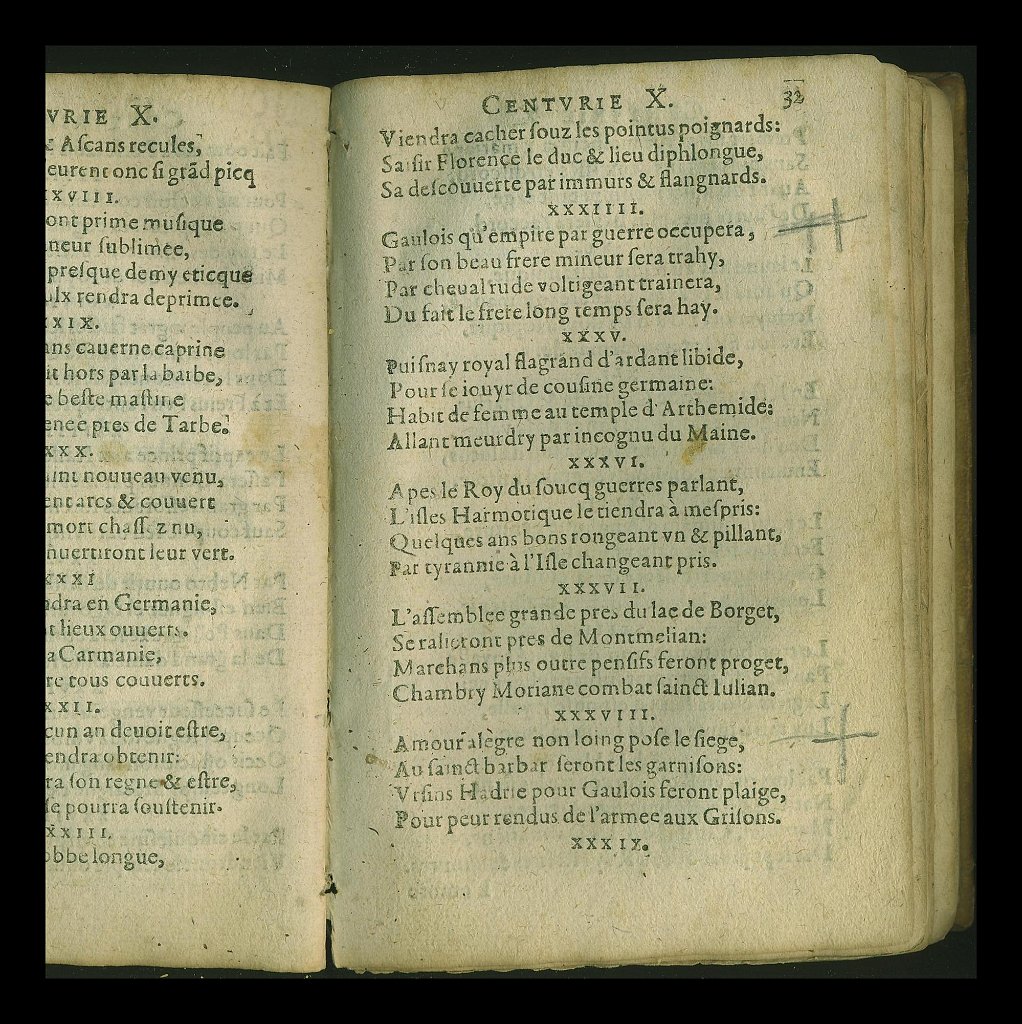 VRIE X.
Ascans recules,
eurent onc si grãd picq
XVIII.
ont prime musique
neur sublimee,
presque demy eticque
ulx rendra deprimee.
XIX.
ans cauerne caprine
it hors par la barbe,
e beste mastine
enee pres de Tarbe.
XXX.
aint nouueau venu,
ent arcs & couuert
mort chassez nu,
nuertiront leur vert.
XXXI
ndra en Germanie,
t lieux ouuerts.
a Carmanie,
re tous couuerts.
XXII.
cun an deuoit estre,
endra obtenir:
ra son regne & estre,
se pourra soustenir.
XXIII.
obbe longue,
CENTVRIE X. 32
Viendra cacher souz les pointus poignards:
Saisir Florence le duc & lieu diphlongue,
Sa descouuerte par immurs & flangnards.
XXXIIII.
Gaulois qu'empire par guerre occupera,
Par son beau frere mineur sera trahy,
Par cheual rude voltigeant trainera,
Du fait le frere long temps sera hay.
XXXV.
Puisnay royal flagrand d'ardant libide,
Pour se iouyr de cousine germaine:
Habit de femme au temple d'Arthemide:
Allant meurdry par incognu du Maine.
XXXVI.
Apes le Roy du soucq guerres parlant,
L'isles Harmotique le tiendra à mespris:
Quelques ans bons rongeant vn & pillant,
Par tyrannie à l'Isle changeant pris.
XXXVII.
L'assemblee grande pres du lac de Borget,
Se ralieront pres de Montmelian:
Marchans plus outre pensifs feront proget,
Chambry Moriane combat sainct Iulian.
XXXVIII.
Amour alegre non loing pose le siege,
Au sainct barbar seront les garnisons:
Vrsins Hadrie pour Gaulois feront plaige,
Pour peur rendus de l'armee aux Grisons.
XXXIX.